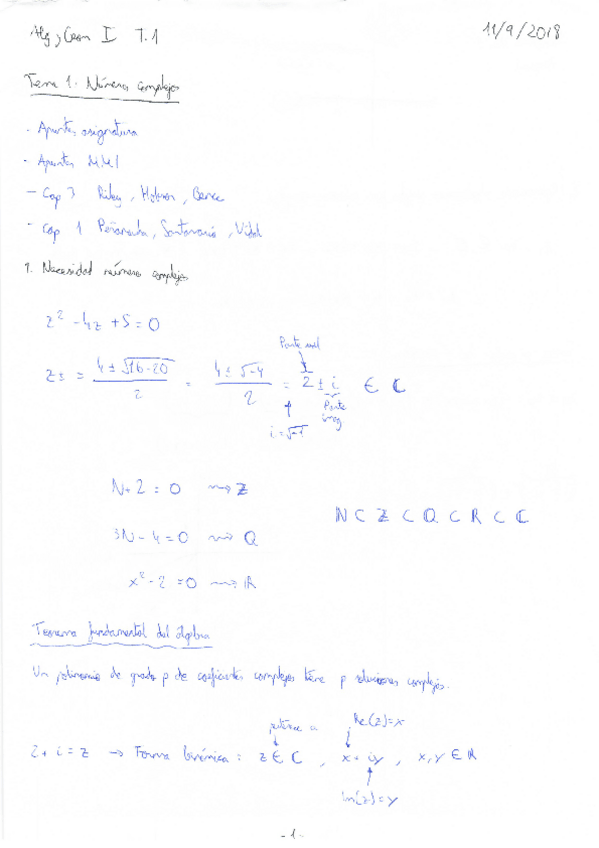 Alg y Geom I T.1 11/9/2018
Tema 1. Números complejos
- Apuntes asignatura
- Apuntes MMI
- Cap 3 Riley, Hobson, Bence
- Cap 1 Peñaranda, Santamaría, Vidal
1. Necesidad números complejos
z² - 4z + 5 = 0
Parte real
z± = (4 ± √(16-20))/2 = (4 ± √-4)/2 = 2 ± i ∈ ℂ
Parte imag
i = √-1
N + 2 = 0 ⇝ ℤ
ℕ ⊂ ℤ ⊂ ℚ ⊂ ℝ ⊂ ℂ
3N - 4 = 0 ⇝ ℚ
x² - 2 = 0 ⇝ ℝ
Teorema fundamental del álgebra
Un polinomio de grado p de coeficientes complejos tiene p soluciones complejas.
Re(z)=x
2 + i = z → Forma binómica: z ∈ ℂ, x + iy, x, y ∈ ℝ
Im(z)=y
- 1 -